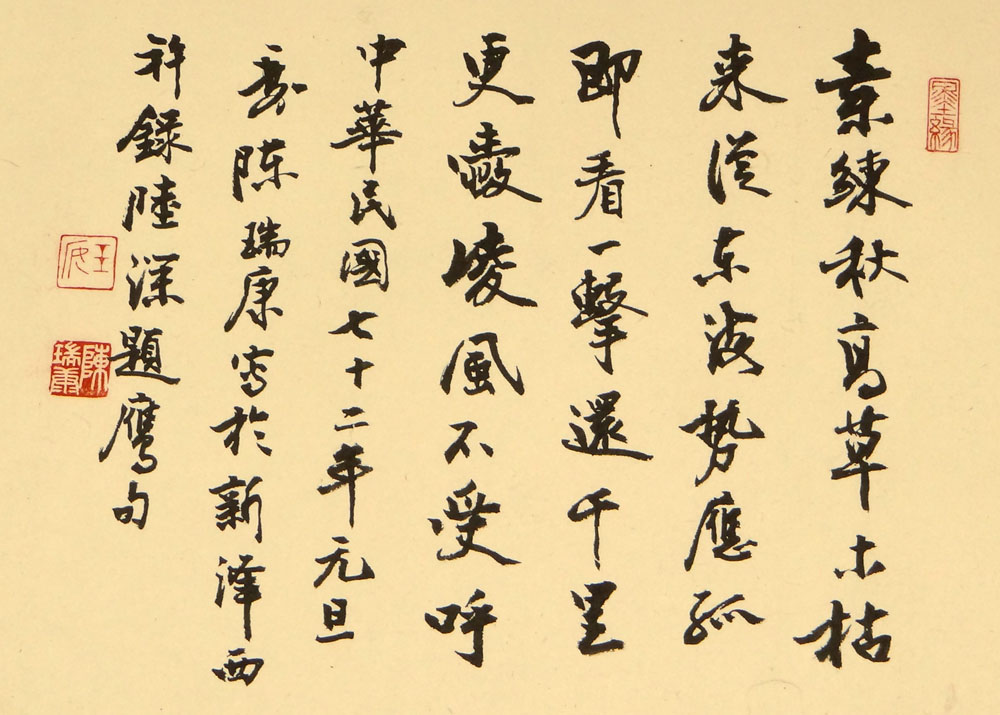 墨緣
素練秋高草木枯
来從东海勢應孤
即看一擊還千里
更凌風不受呼
中華民國七十二年元旦
陈瑞康寫於新泽西
錄陸深題鷹句
陳瑞康